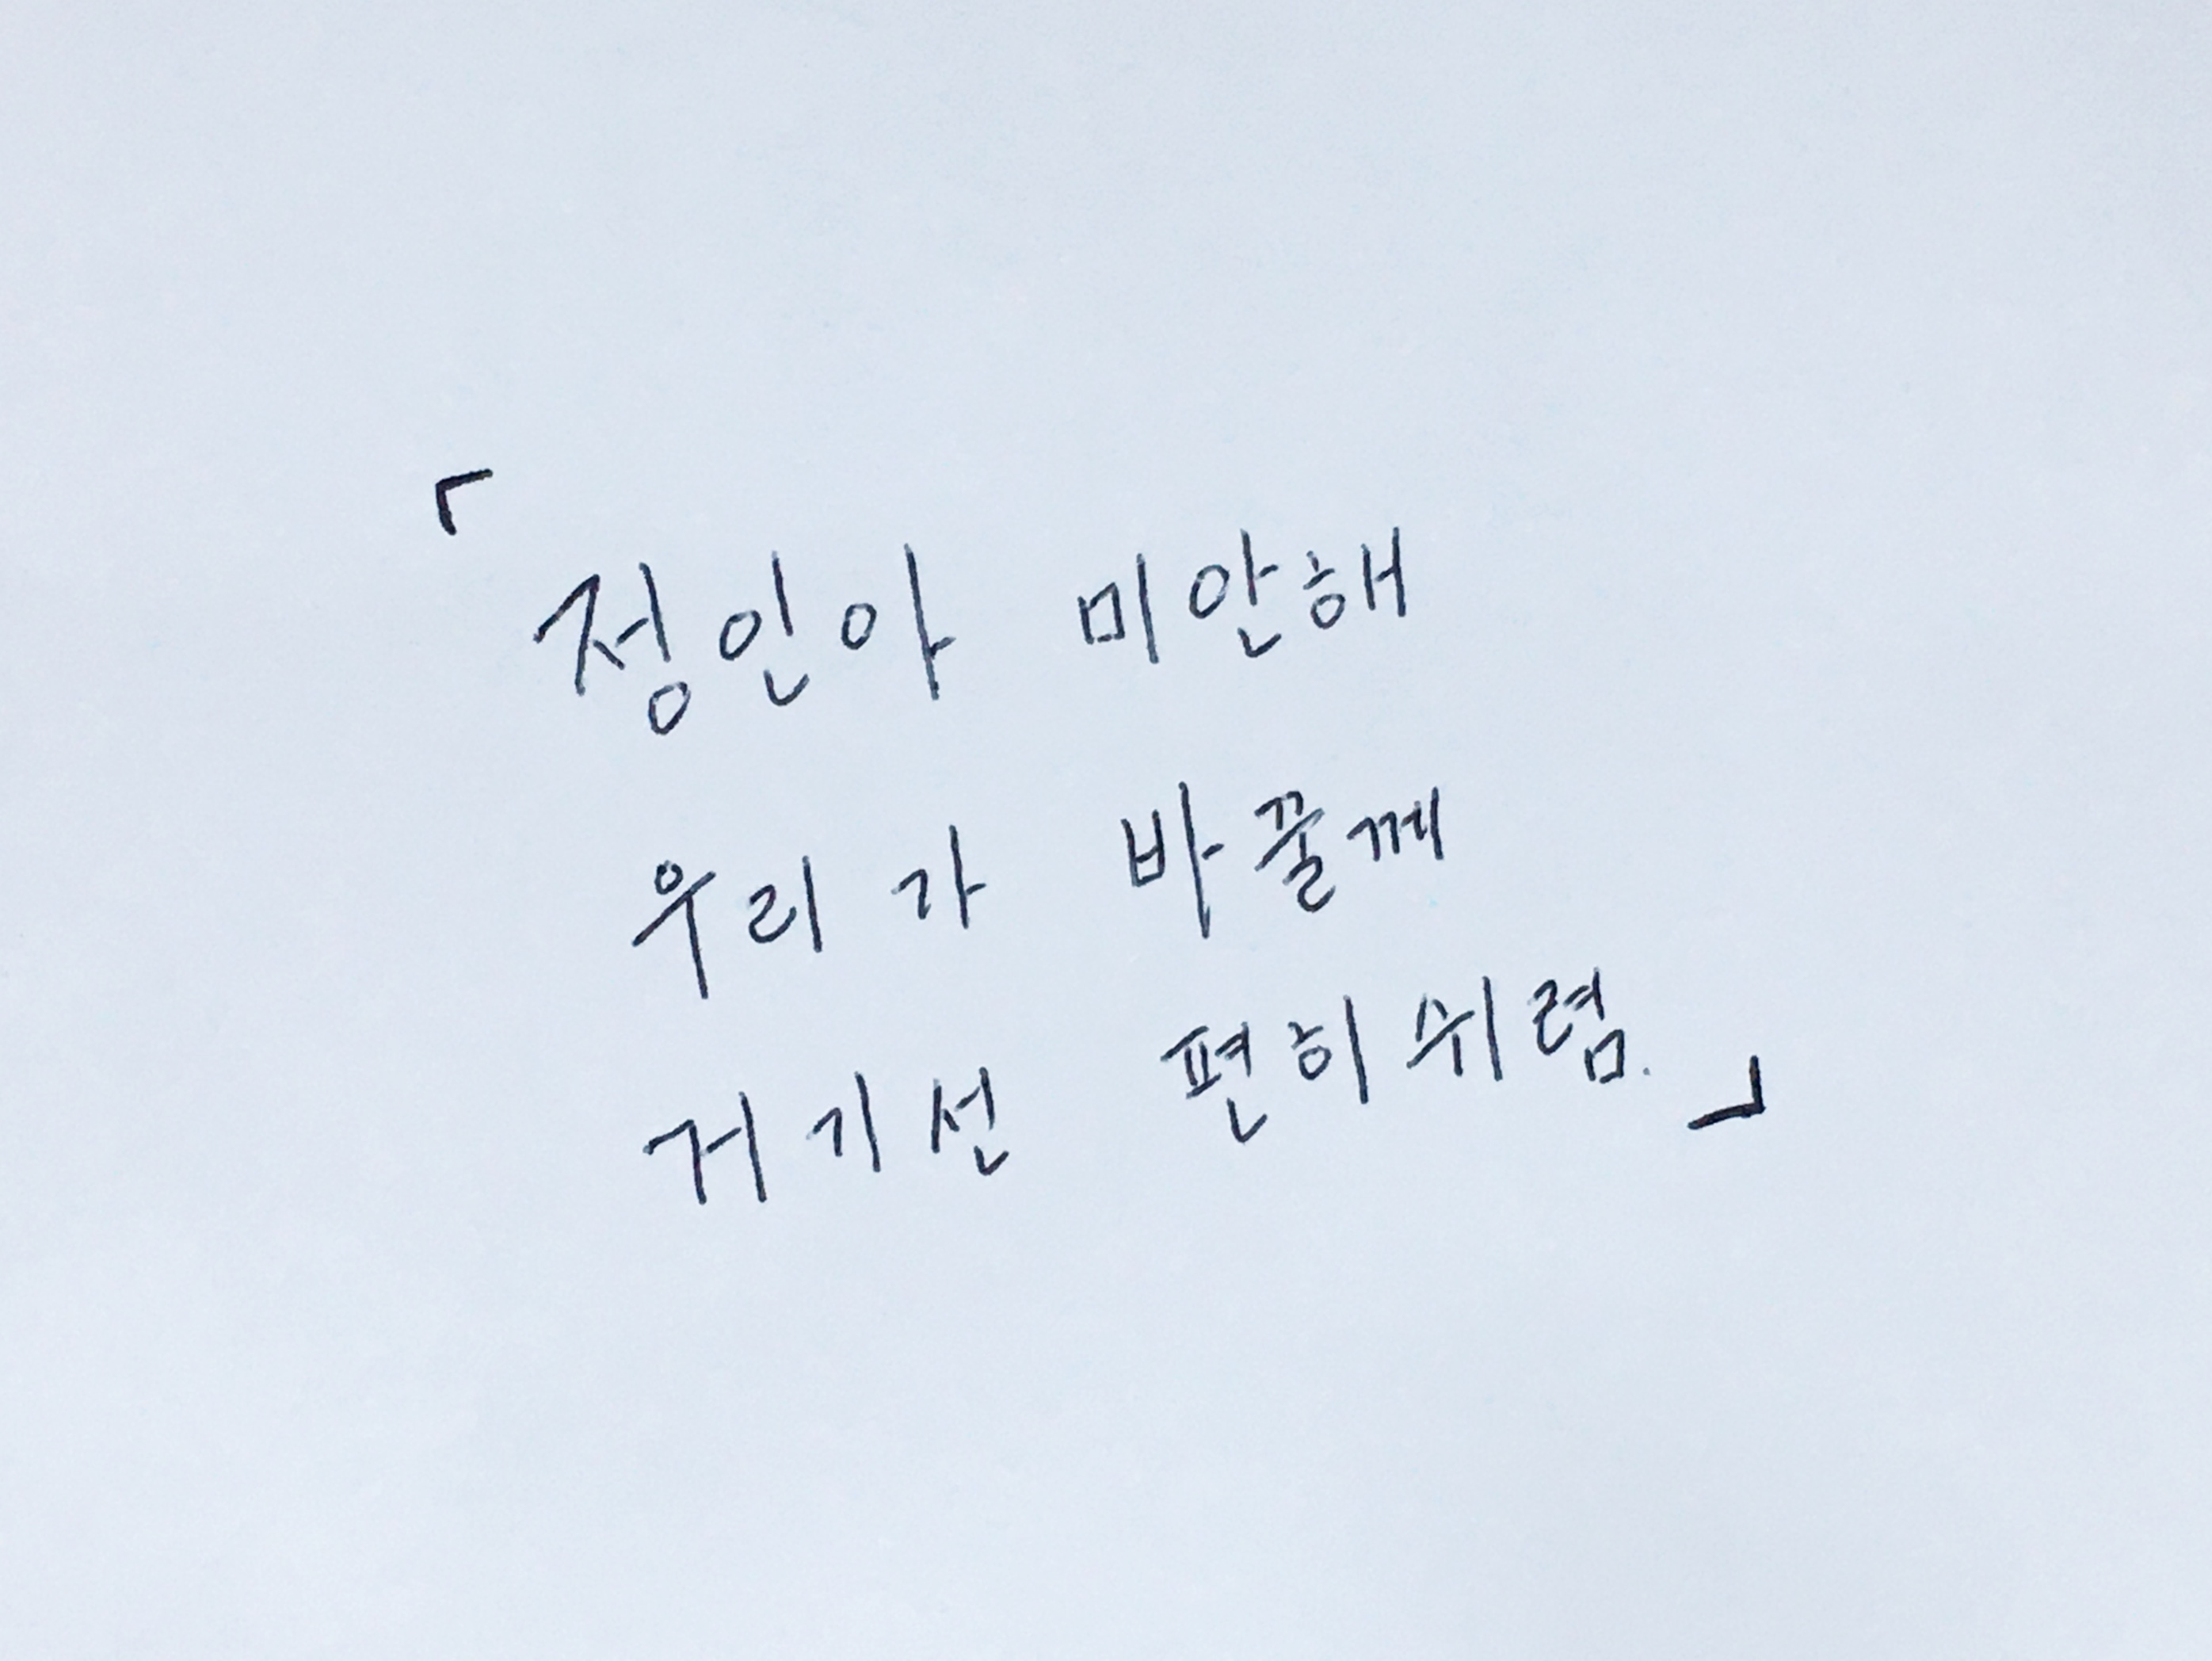 「정인아 미안해
우리가 바꿀께
거기선 편히쉬렴.」